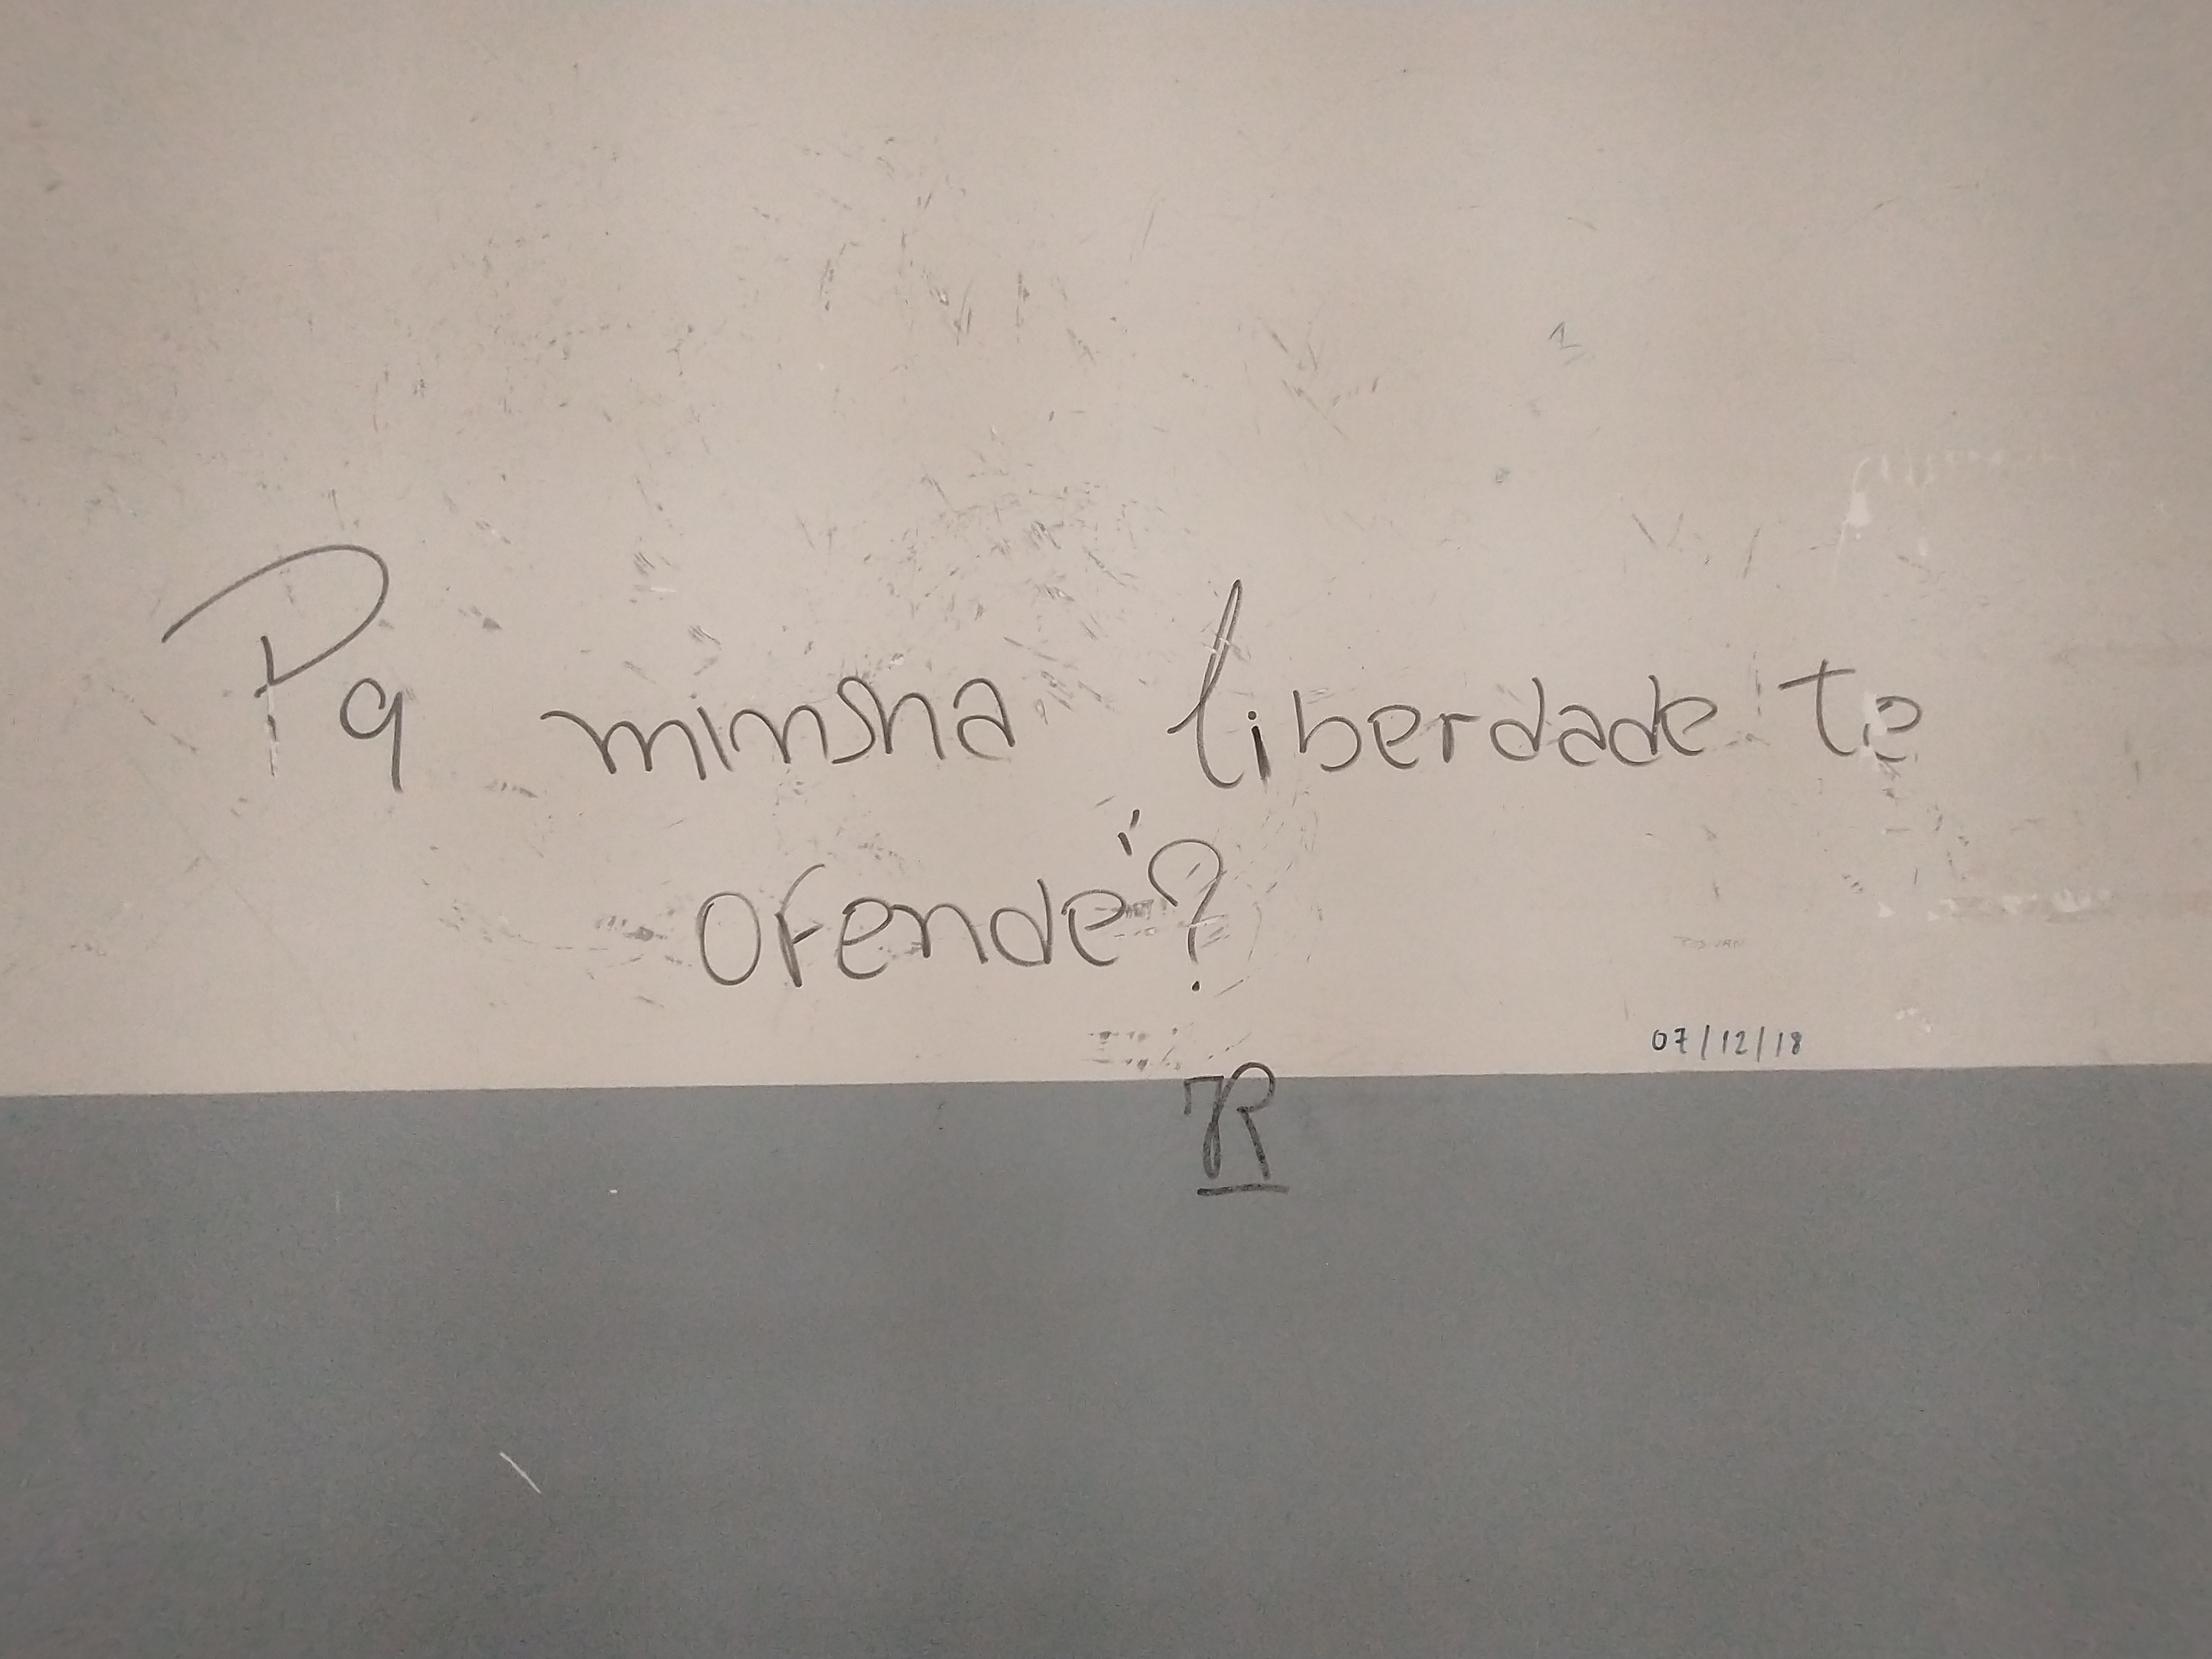 Pq minha liberdade te
ofende?
07/12/18
R